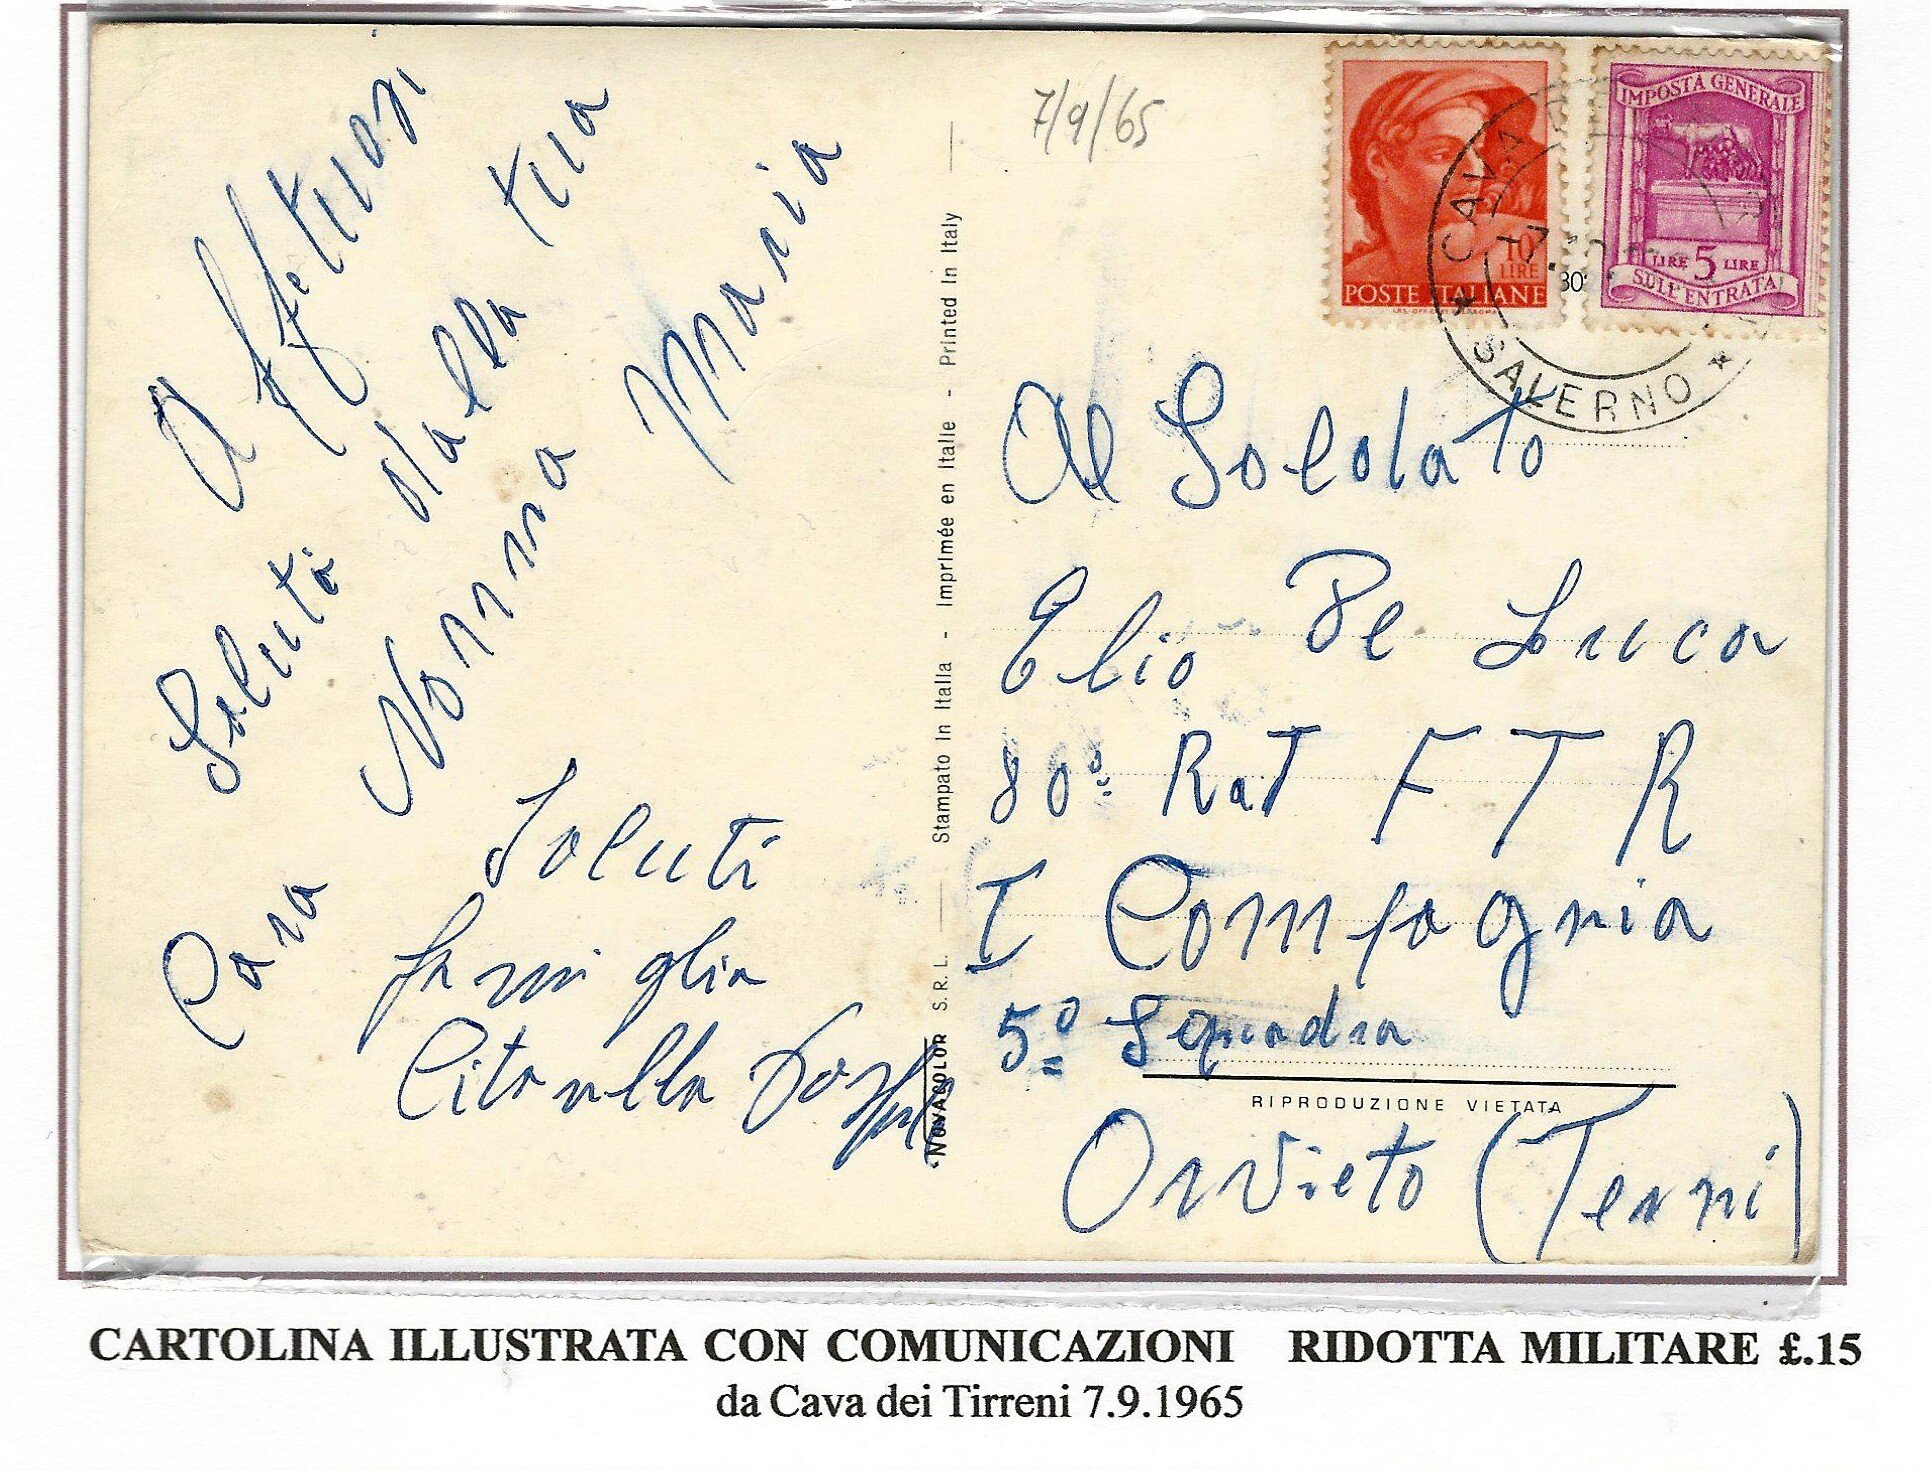 Affettuosi
Saluti dalla tua
Cara Nonna Maria
Saluti
famiglia
Citarella
7/9/65
POSTE ITALIANE
10
LIRE
IMPOSTA GENERALE
LIRE 5 LIRE
SULL'ENTRATA
CAVA
SALERNO
80
Al Soldato
Elio De Luca
80° Rat F T R
I Compagnia
5° Squadra
RIPRODUZIONE VIETATA
Orvieto (Terni)
NOVACOLOR S.R.L. — Stampato in Italia - Imprimée en Italie - Printed in Italy
CARTOLINA ILLUSTRATA CON COMUNICAZIONI RIDOTTA MILITARE £.15
da Cava dei Tirreni 7.9.1965